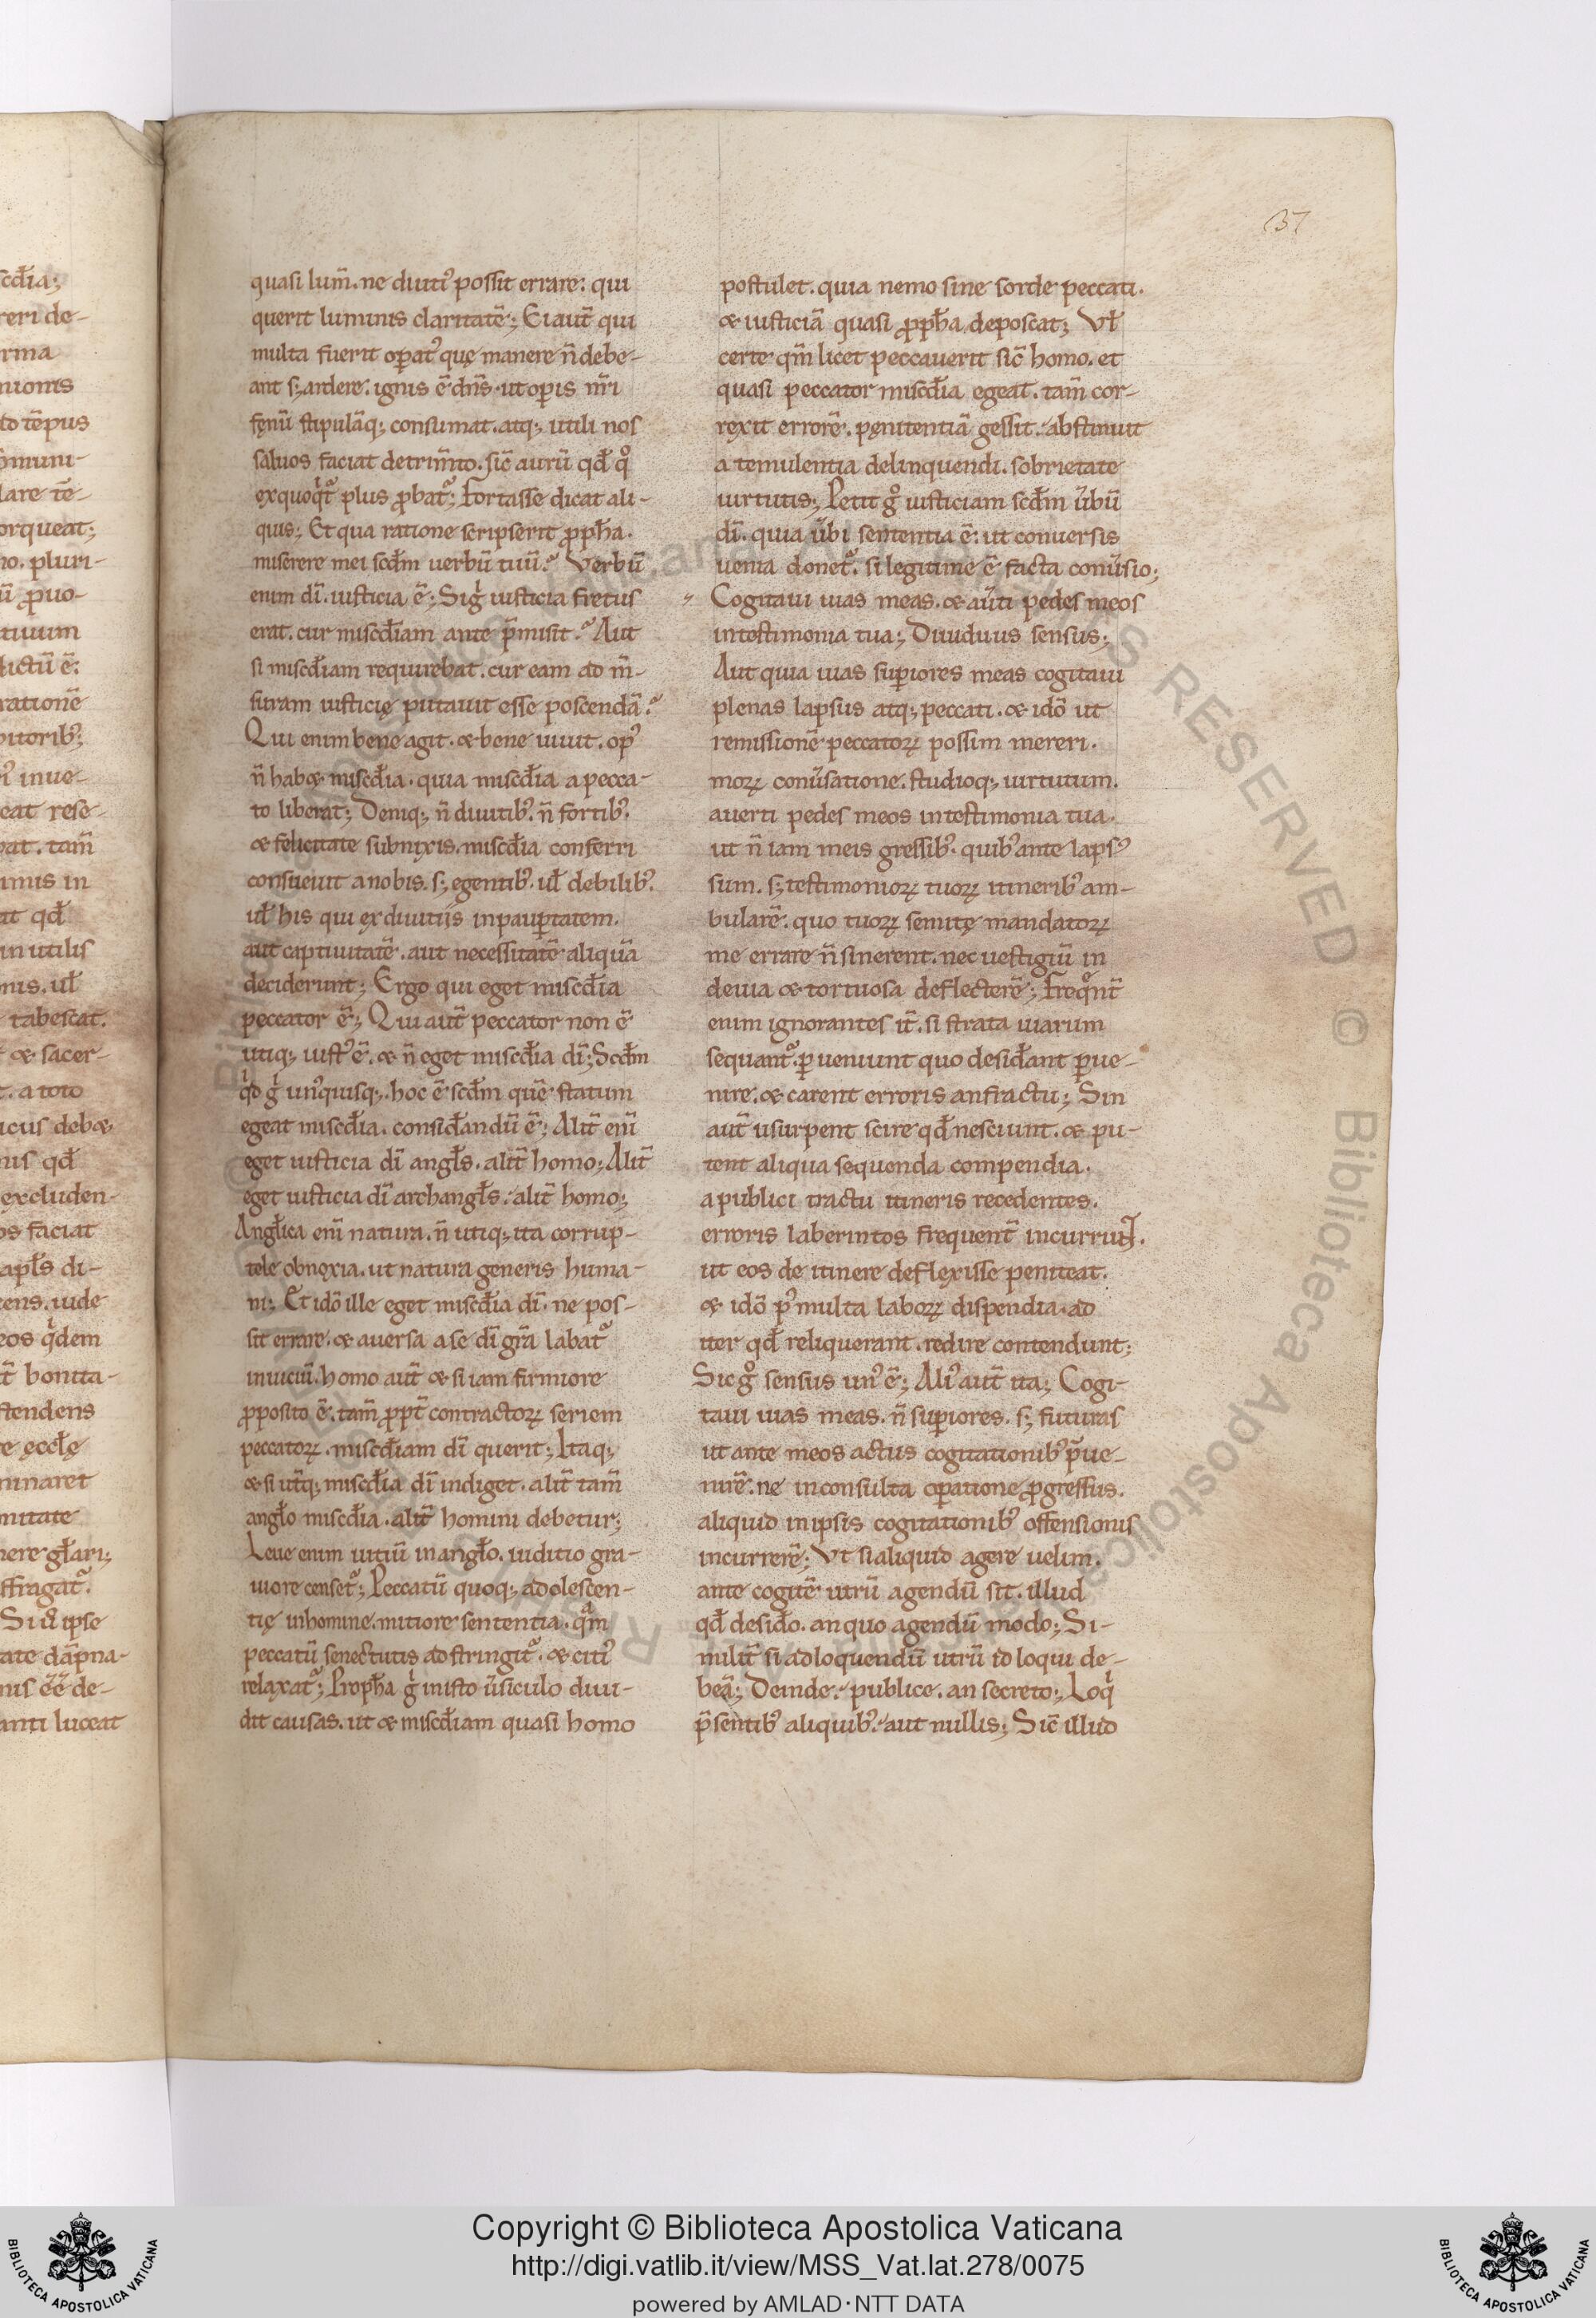 137
quasi lum̃. ne diuti᾽ possit errare: qui
querit luminis claritatẽ; Ei aut̃ qui
multa fuerit oꝑat᾽ quę manere ñ debe-
ant s; ardere. ignis ẽ dñs. ut oꝑis nr̃i
fęnũ stipulãq; consumat. atq; utili nos
saluos faciat detrim̃to. sic̃ aurũ qđ qͦ
exquoqͥtᷣ plus ꝓbatᷣ; Fortasse dicat ali-
quis; Et qua ratione scripserit ꝓpħa.
miserere mei scđm uerbũ tuũ? Verbũ
enim dĩ. iusticia ẽ; Si gͥ iusticia fretus
erat. cur miscđiam ante p̃misit? Aut
si miscđiam requirebat. cur eam ad m̃-
suram iusticię putauit esse poscendã?
Qui enim bene agit. & bene uiuit. op᾽
ñ hab& miscđia. quia miscđia a pecca-
to liberat; Deniq; ñ diuitib᾽. ñ fortib᾽.
& felicitate subnixis. miscđia conferri
consueuit a nobis. s; egentib᾽. uł debilib᾽.
uł his qui ex diuitiis in pauꝑtatem.
aut captiuitatẽ. aut necessitatẽ aliquã
deciderunt; Ergo qui eget miscđia
peccator ẽ; Qui aut̃ peccator non ẽ
utiq; iust᾽ ẽ. & ñ eget miscđia dĩ; Scđm
qͥd gͥ un᾽quisq;. hoc ẽ scđm quẽ statum
egeat miscđia. consiđandũ ẽ; Alit̃ enĩ
eget iusticia dĩ angłs. alit̃ homo; Alit̃
eget iusticia dĩ archangłs. alit̃ homo;
Angłica enĩ natura. ñ utiq; ita corrup-
tele obnęxia. ut natura generis huma-
ni; Et idõ ille eget miscđia dĩ. ne pos-
sit errare. & auersa a se dĩ gr̃a labatᷣ
in uiciũ. homo aut̃ & si iam firmiore
ꝓposito ẽ. tam̃ ꝓpt̃ contractoꝝ seriem
peccatoꝝ. miscđiam dĩ querit; Itaq;
& si ut̃q; miscđia dĩ indiget. alit̃ tam̃
angło miscđia. alit̃ homini debetur;
Leue enim uitiũ in angło. iuditio gra-
uiore censetᷣ; Peccatũ quoq; adolescen-
tię in homine. mitiore sententia. qᷓm
peccatũ senectutis adstringitᷣ. & citi᾽
relaxatᷣ; Propħa gͥ in isto ũsiculo diui-
dit causas. ut & miscđiam quasi homo
postulet. quia nemo sine sorde peccati.
& iusticiã quasi ꝓpħa deposcat; Vł
certe qm̃ licet peccauerit sic̃ homo. et
quasi peccator miscđia egeat. tam̃ cor-
rexit errorẽ. pęnitentiã gessit. abstinuit
a temulentia delinquendi. sobrietate
uirtutis; Petit gͦ iusticiam scđm ũbũ
dĩ. quia ũbi sententia ẽ: ut conuersis
uenia donetᷣ. si legitime ẽ facta conũsio;
Cogitaui uias meas. & aũti pedes meos
in testimonia tua; Diuiduus sensus;
Aut quia uias suꝑiores meas cogitaui
plenas lapsus atq; peccati. & idõ ut
remissionẽ peccatoꝝ possim mereri.
moꝝ conũsatione. studioq; uirtutum.
auerti pedes meos in testimonia tua.
ut ñ iam meis gressib᾽. quib᾽ ante laps᾽
sum. s; testimonioꝝ tuoꝝ itinerib᾽ am-
bularẽ. quo tuoꝝ semitę mandatoꝝ
me errare ñ sinerent. nec uestigiũ in
deuia & tortuosa deflecterẽ; Freqͦnt̃
enim ignorantes it̃. si strata uiarum
sequantᷣ. ꝑueniunt quo desiđant ꝑue-
nire. & carent erroris anfractu; Sin
aut̃ usurpent scire qđ nesciunt. & pu-
tent aliqua sequenda compendia.
a publici tractu itineris recedentes.
erroris laberintos frequent̃ incurrunt.
ut eos de itinere deflexisse peniteat.
& idõ p᾽ multa laboꝝ dispendia. ad
iter qđ reliquerant. redire contendunt;
Sic gͦ sensus un᾽ ẽ; Ali᾽ aut̃ ita; Cogi-
taui uias meas. ñ suꝑiores. s; futuras
ut ante meos actus cogitationib᾽ pᷓue-
nirẽ. ne inconsulta oꝑatione ꝓgressus.
aliquid in ipsis cogitationib᾽ offensionis
incurrerẽ; Vt si aliquid agere uelim.
ante cogitẽ utrũ agendũ sit. illud
qđ desiđo. an quo agendũ modo; Si-
milit̃ si ad loquendũ utrũ id loqui de-
beã; Deinde. publice. an secreto; Loqͥ
p̃sentib᾽ aliquib᾽. aut nullis; Sic̃ illud
Copyright © Biblioteca Apostolica Vaticana
http://digi.vatlib.it/view/MSS_Vat.lat.278/0075
powered by AMLAD·NTT DATA